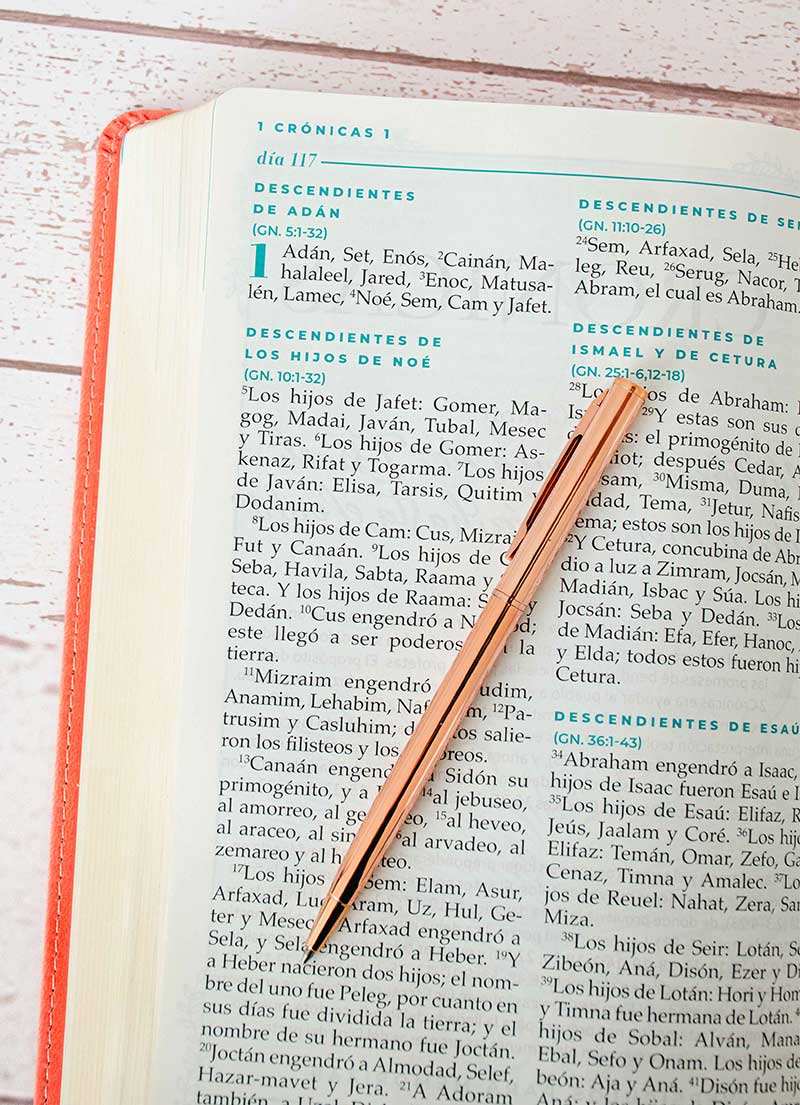 1 CRÓNICAS 1
día 117
DESCENDIENTES
DE ADÁN
(GN. 5:1-32)
1 Adán, Set, Enós, ²Cainán, Ma-
halaleel, Jared, ³Enoc, Matusa-
lén, Lamec, ⁴Noé, Sem, Cam y Jafet.
DESCENDIENTES DE
LOS HIJOS DE NOÉ
(GN. 10:1-32)
⁵Los hijos de Jafet: Gomer, Ma-
gog, Madai, Javán, Tubal, Mesec
y Tiras. ⁶Los hijos de Gomer: As-
kenaz, Rifat y Togarma. ⁷Los hijos
de Javán: Elisa, Tarsis, Quitim y
Dodanim.
⁸Los hijos de Cam: Cus, Mizrai
Fut y Canaán. ⁹Los hijos de
Seba, Havila, Sabta, Raama y
teca. Y los hijos de Raama: y
Dedán. ¹⁰Cus engendró a
este llegó a ser poderos la
tierra.
¹¹Mizraim engendró udim,
Anamim, Lehabim, Naf m, ¹²Pa-
trusim y Casluhim; d tos salie-
ron los filisteos y los oreos.
¹³Canaán engend a Sidón su
primogénito, y a ¹⁴al jebuseo,
al amorreo, al ge eo, ¹⁵al heveo,
al araceo, al sin al arvadeo, al
zemareo y al h teo.
¹⁷Los hijos Sem: Elam, Asur,
Arfaxad, Lud Aram, Uz, Hul, Ge-
ter y Mesec Arfaxad engendró a
Sela, y Sela engendró a Heber. ¹⁹Y
a Heber nacieron dos hijos; el nom-
bre del uno fue Peleg, por cuanto en
sus días fue dividida la tierra; y el
nombre de su hermano fue Joctán.
²⁰Joctán engendró a Almodad, Selef,
Hazar-mavet y Jera. ²¹A Adoram
también, a Uzal
DESCENDIENTES DE SEM
(GN. 11:10-26)
²⁴Sem, Arfaxad, Sela, ²⁵He
leg, Reu, ²⁶Serug, Nacor, T
Abram, el cual es Abraham.
DESCENDIENTES DE
ISMAEL Y DE CETURA
(GN. 25:1-6,12-18)
²⁸Los hijos de Abraham:
Is ²⁹Y estas son sus
el primogénito de
iot; después Cedar, A
sam, ³⁰Misma, Duma,
dad, Tema, ³¹Jetur, Nafis
ema; estos son los hijos de I
Y Cetura, concubina de Abr
dio a luz a Zimram, Jocsán, M
Madián, Isbac y Súa. Los hi
Jocsán: Seba y Dedán. ³³Los
de Madián: Efa, Efer, Hanoc,
y Elda; todos estos fueron hi
Cetura.
DESCENDIENTES DE ESAÚ
(GN. 36:1-43)
³⁴Abraham engendró a Isaac,
hijos de Isaac fueron Esaú e I
³⁵Los hijos de Esaú: Elifaz, R
Jeús, Jaalam y Coré. ³⁶Los hij
Elifaz: Temán, Omar, Zefo, Ga
Cenaz, Timna y Amalec. ³⁷Lo
jos de Reuel: Nahat, Zera, Sa
Miza.
³⁸Los hijos de Seir: Lotán, S
Zibeón, Aná, Disón, Ezer y Di
³⁹Los hijos de Lotán: Hori y Hom
y Timna fue hermana de Lotán.
hijos de Sobal: Alván, Mana
Ebal, Sefo y Onam. Los hijos de
beón: Aja y Aná. ⁴¹Disón fue hij